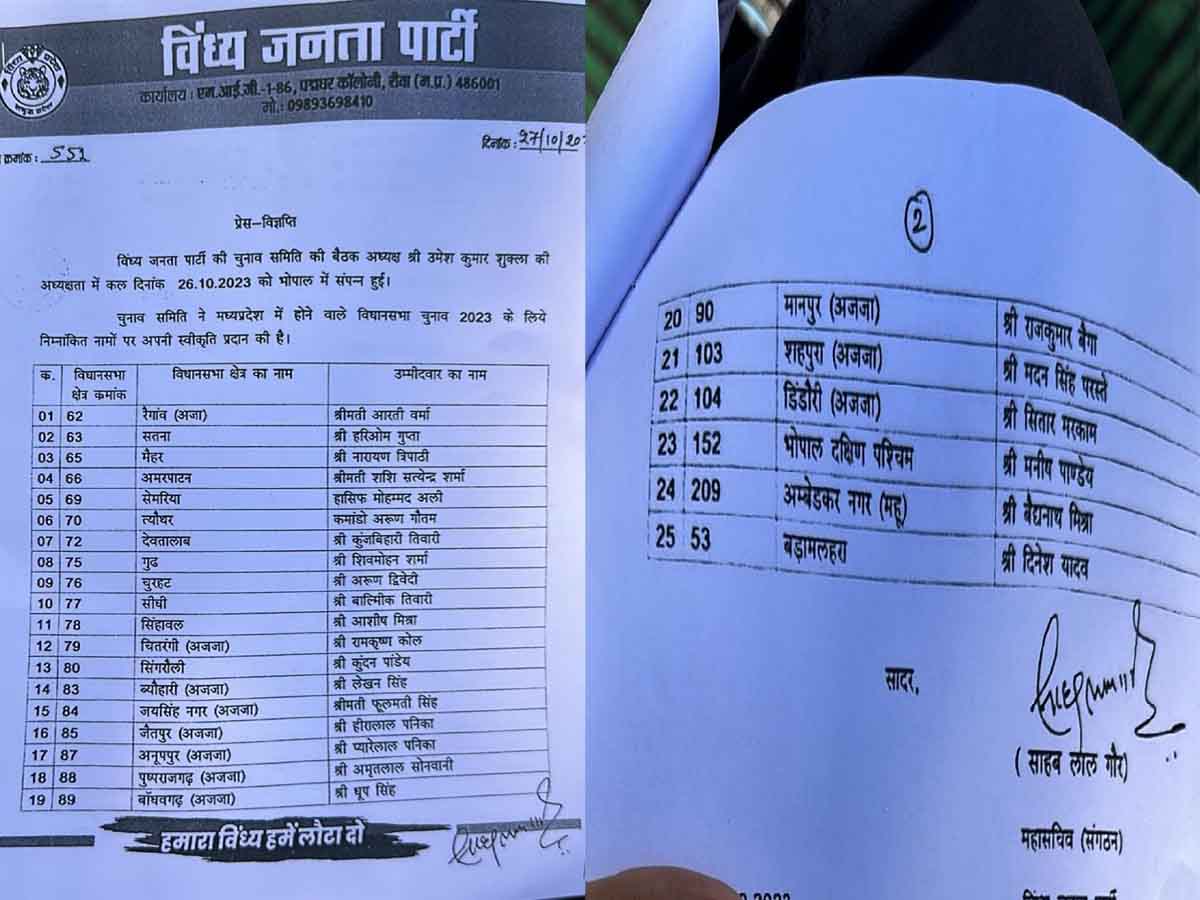 विंध्य जनता पार्टी
कार्यालय : एम.आई.जी.-1-86, पद्मधर कॉलोनी, रीवा (म.प्र.) 486001
मो.: 09893698410
क्रमांक : 552
दिनांक : 27/10/20
प्रेस–विज्ञप्ति
विंध्य जनता पार्टी की चुनाव समिति की बैठक अध्यक्ष श्री उमेश कुमार शुक्ला की
अध्यक्षता में कल दिनांक 26.10.2023 को भोपाल में संपन्न हुई।
चुनाव समिति ने मध्यप्रदेश में होने वाले विधानसभा चुनाव 2023 के लिये
निम्नांकित नामों पर अपनी स्वीकृति प्रदान की है।
क. विधानसभा क्षेत्र कमांक विधानसभा क्षेत्र का नाम उम्मीदवार का नाम
01 62 रैगांव (अजा) श्रीमती आरती वर्मा
02 63 सतना श्री हरिओम गुप्ता
03 65 मैहर श्री नारायण त्रिपाठी
04 66 अमरपाटन श्रीमती शशि सत्येन्द्र शर्मा
05 69 सेमरिया हासिफ मोहम्मद अली
06 70 त्यौथर कमांडो अरूण गौतम
07 72 देवतालाब श्री कुंजबिहारी तिवारी
08 75 गुढ श्री शिवमोहन शर्मा
09 76 चुरहट श्री अरूण द्विवेदी
10 77 सीधी श्री बाल्मिक तिवारी
11 78 सिंहावल श्री आशीष मिश्रा
12 79 चितरंगी (अजजा) श्री रामकृष्ण कोल
13 80 सिंगरौली श्री कुंदन पांडेय
14 83 ब्यौहारी (अजजा) श्री लेखन सिंह
15 84 जयसिंह नगर (अजजा) श्रीमती फूलमती सिंह
16 85 जैतपुर (अजजा) श्री हीरालाल पनिका
17 87 अनूपपुर (अजजा) श्री प्यारेलाल पनिका
18 88 पुष्पराजगढ़ (अजजा) श्री अमृतलाल सोनवानी
19 89 बाँधवगढ़ (अजजा) श्री धूप सिंह
हमारा विंध्य हमें लौटा दो
2
20 90 मानपुर (अजजा) श्री राजकुमार बैगा
21 103 शहपुरा (अजजा) श्री मदन सिंह परस्ते
22 104 डिंडौरी (अजजा) श्री सितार मरकाम
23 152 भोपाल दक्षिण पश्चिम श्री मनीष पाण्डेय
24 209 अम्बेडकर नगर (महू) श्री बैद्यनाथ मिश्रा
25 53 बड़ामलहरा श्री दिनेश यादव
सादर,
( साहब लाल गौर)
महासचिव (संगठन)